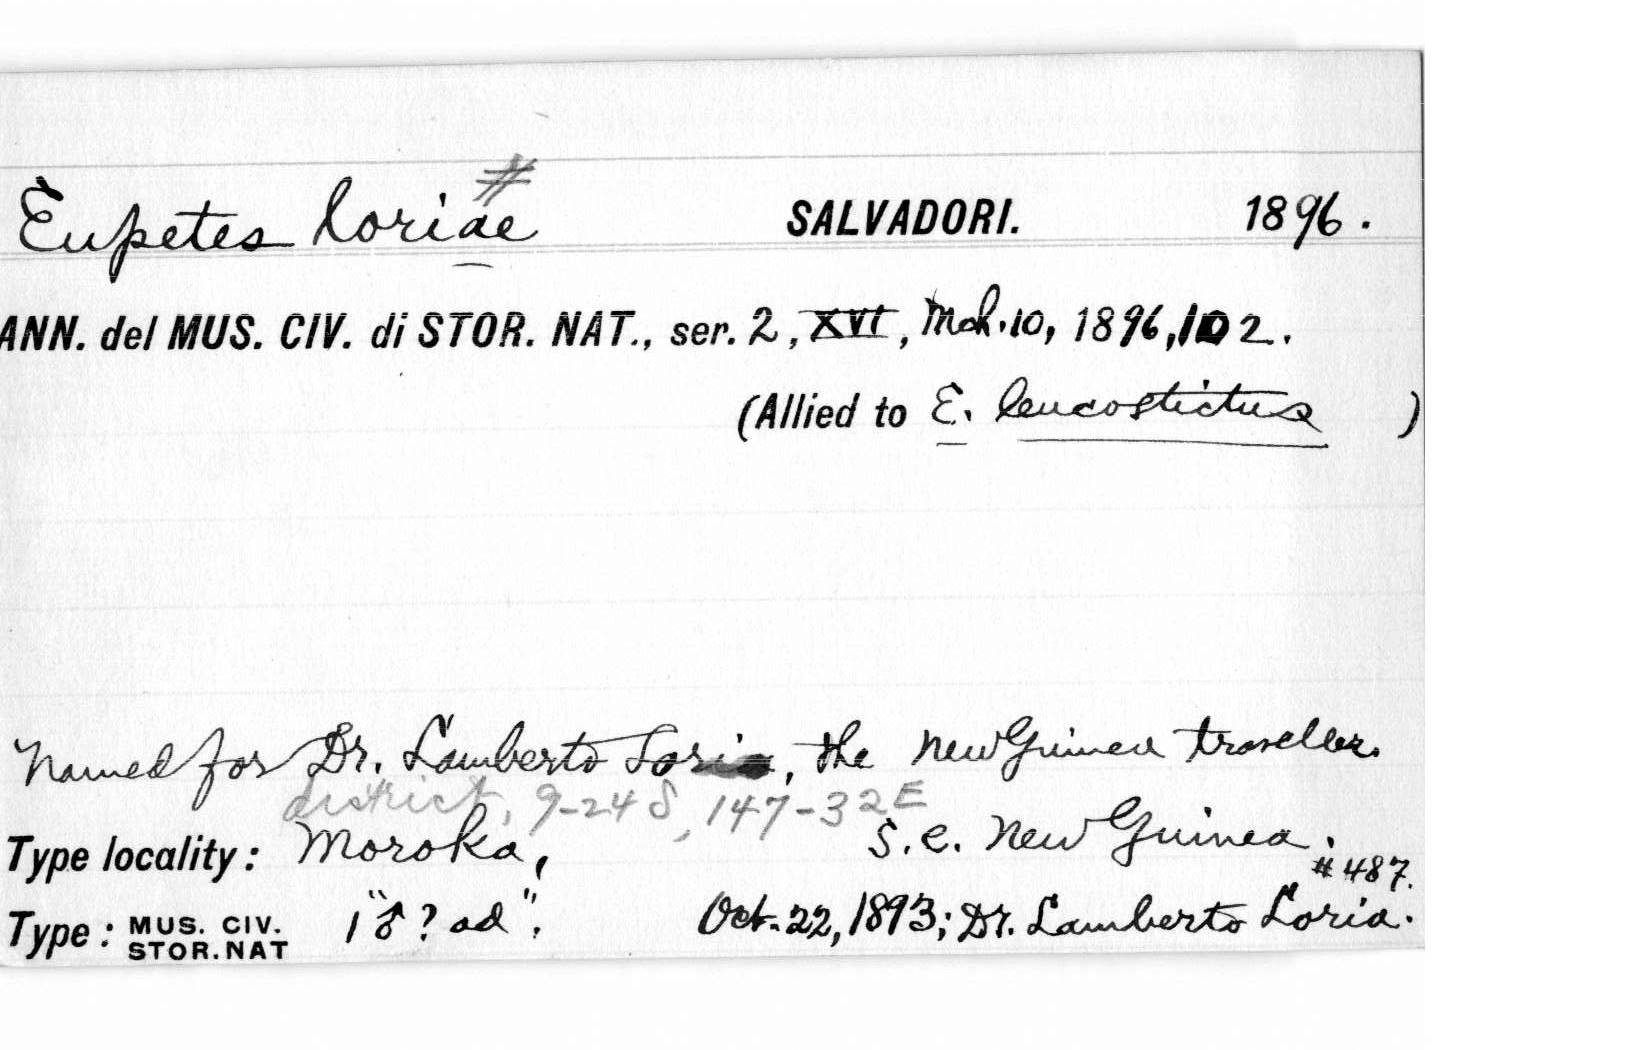 #
Eupetes loriae SALVADORI. 1896.
ANN. del MUS. CIV. di STOR. NAT., ser. 2, XVI, Mch. 10, 1896, 102.
(Allied to E. leucostictus )
Named for Dr. Lamberto Loria, the New Guinea traveller.
district, 9-24 S, 147-32 E
Type locality: Moroka, S.E. New Guinea.
#487.
Type: MUS. CIV. STOR. NAT 1 "♂? ad". Oct. 22, 1893; Dr. Lamberto Loria.